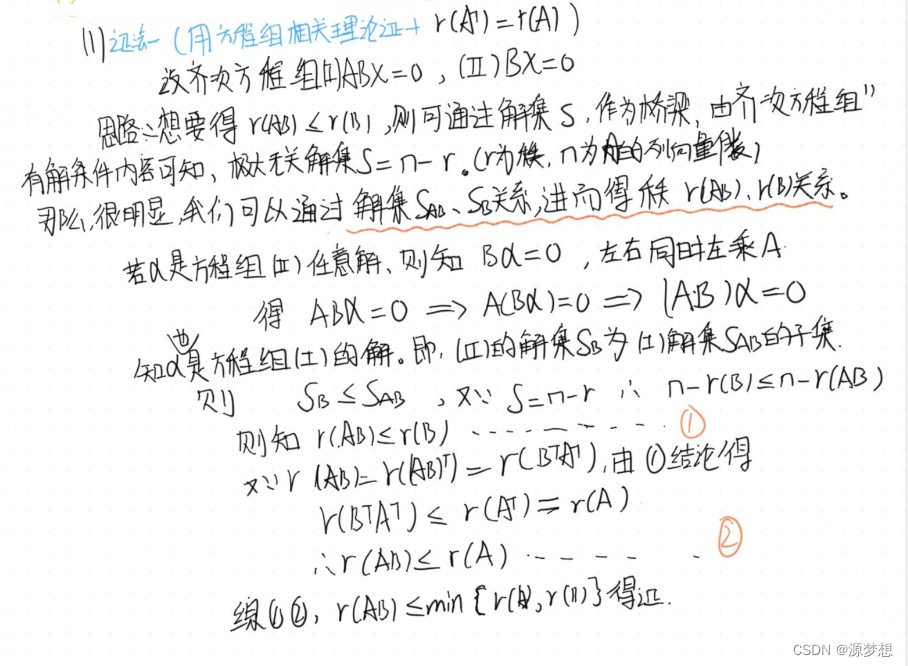 (1)证法一 (用方程组相关理论证+ r(Aᵀ)=r(A) )
设齐次方程组(I)ABX=0 , (II) BX=0
思路:想要得 r(AB)≤r(B) ,则可通过解集S,作为桥梁,由齐次方程组"
有解条件内容可知,极大无关解集S=n-r。(r为秩,n为 的列向量 )
那么,很明显,我们可以通过 解集SAB、SB关系,进而得秩 r(AB)、r(B)关系。
若α是方程组(II)任意解、则知 Bα=0 ,左右同时左乘A
得 ABα=0 => A(Bα)=0 => (AB)α=0
知α也是方程组(I)的解。即,(II)的解集SB为(I)解集SAB的子集.
则 SB≤SAB ,又∵ S=n-r ∴ n-r(B)≤n-r(AB)
则知 r(AB)≤r(B) ---------- ①
又∵r(AB)=r((AB)ᵀ)=r(BᵀAᵀ),由①结论得
r(BᵀAᵀ)≤ r(Aᵀ)=r(A)
∴r(AB)≤r(A) ----- ②
综①②, r(AB)≤min{r(A),r(B)}得证.
CSDN @源梦想